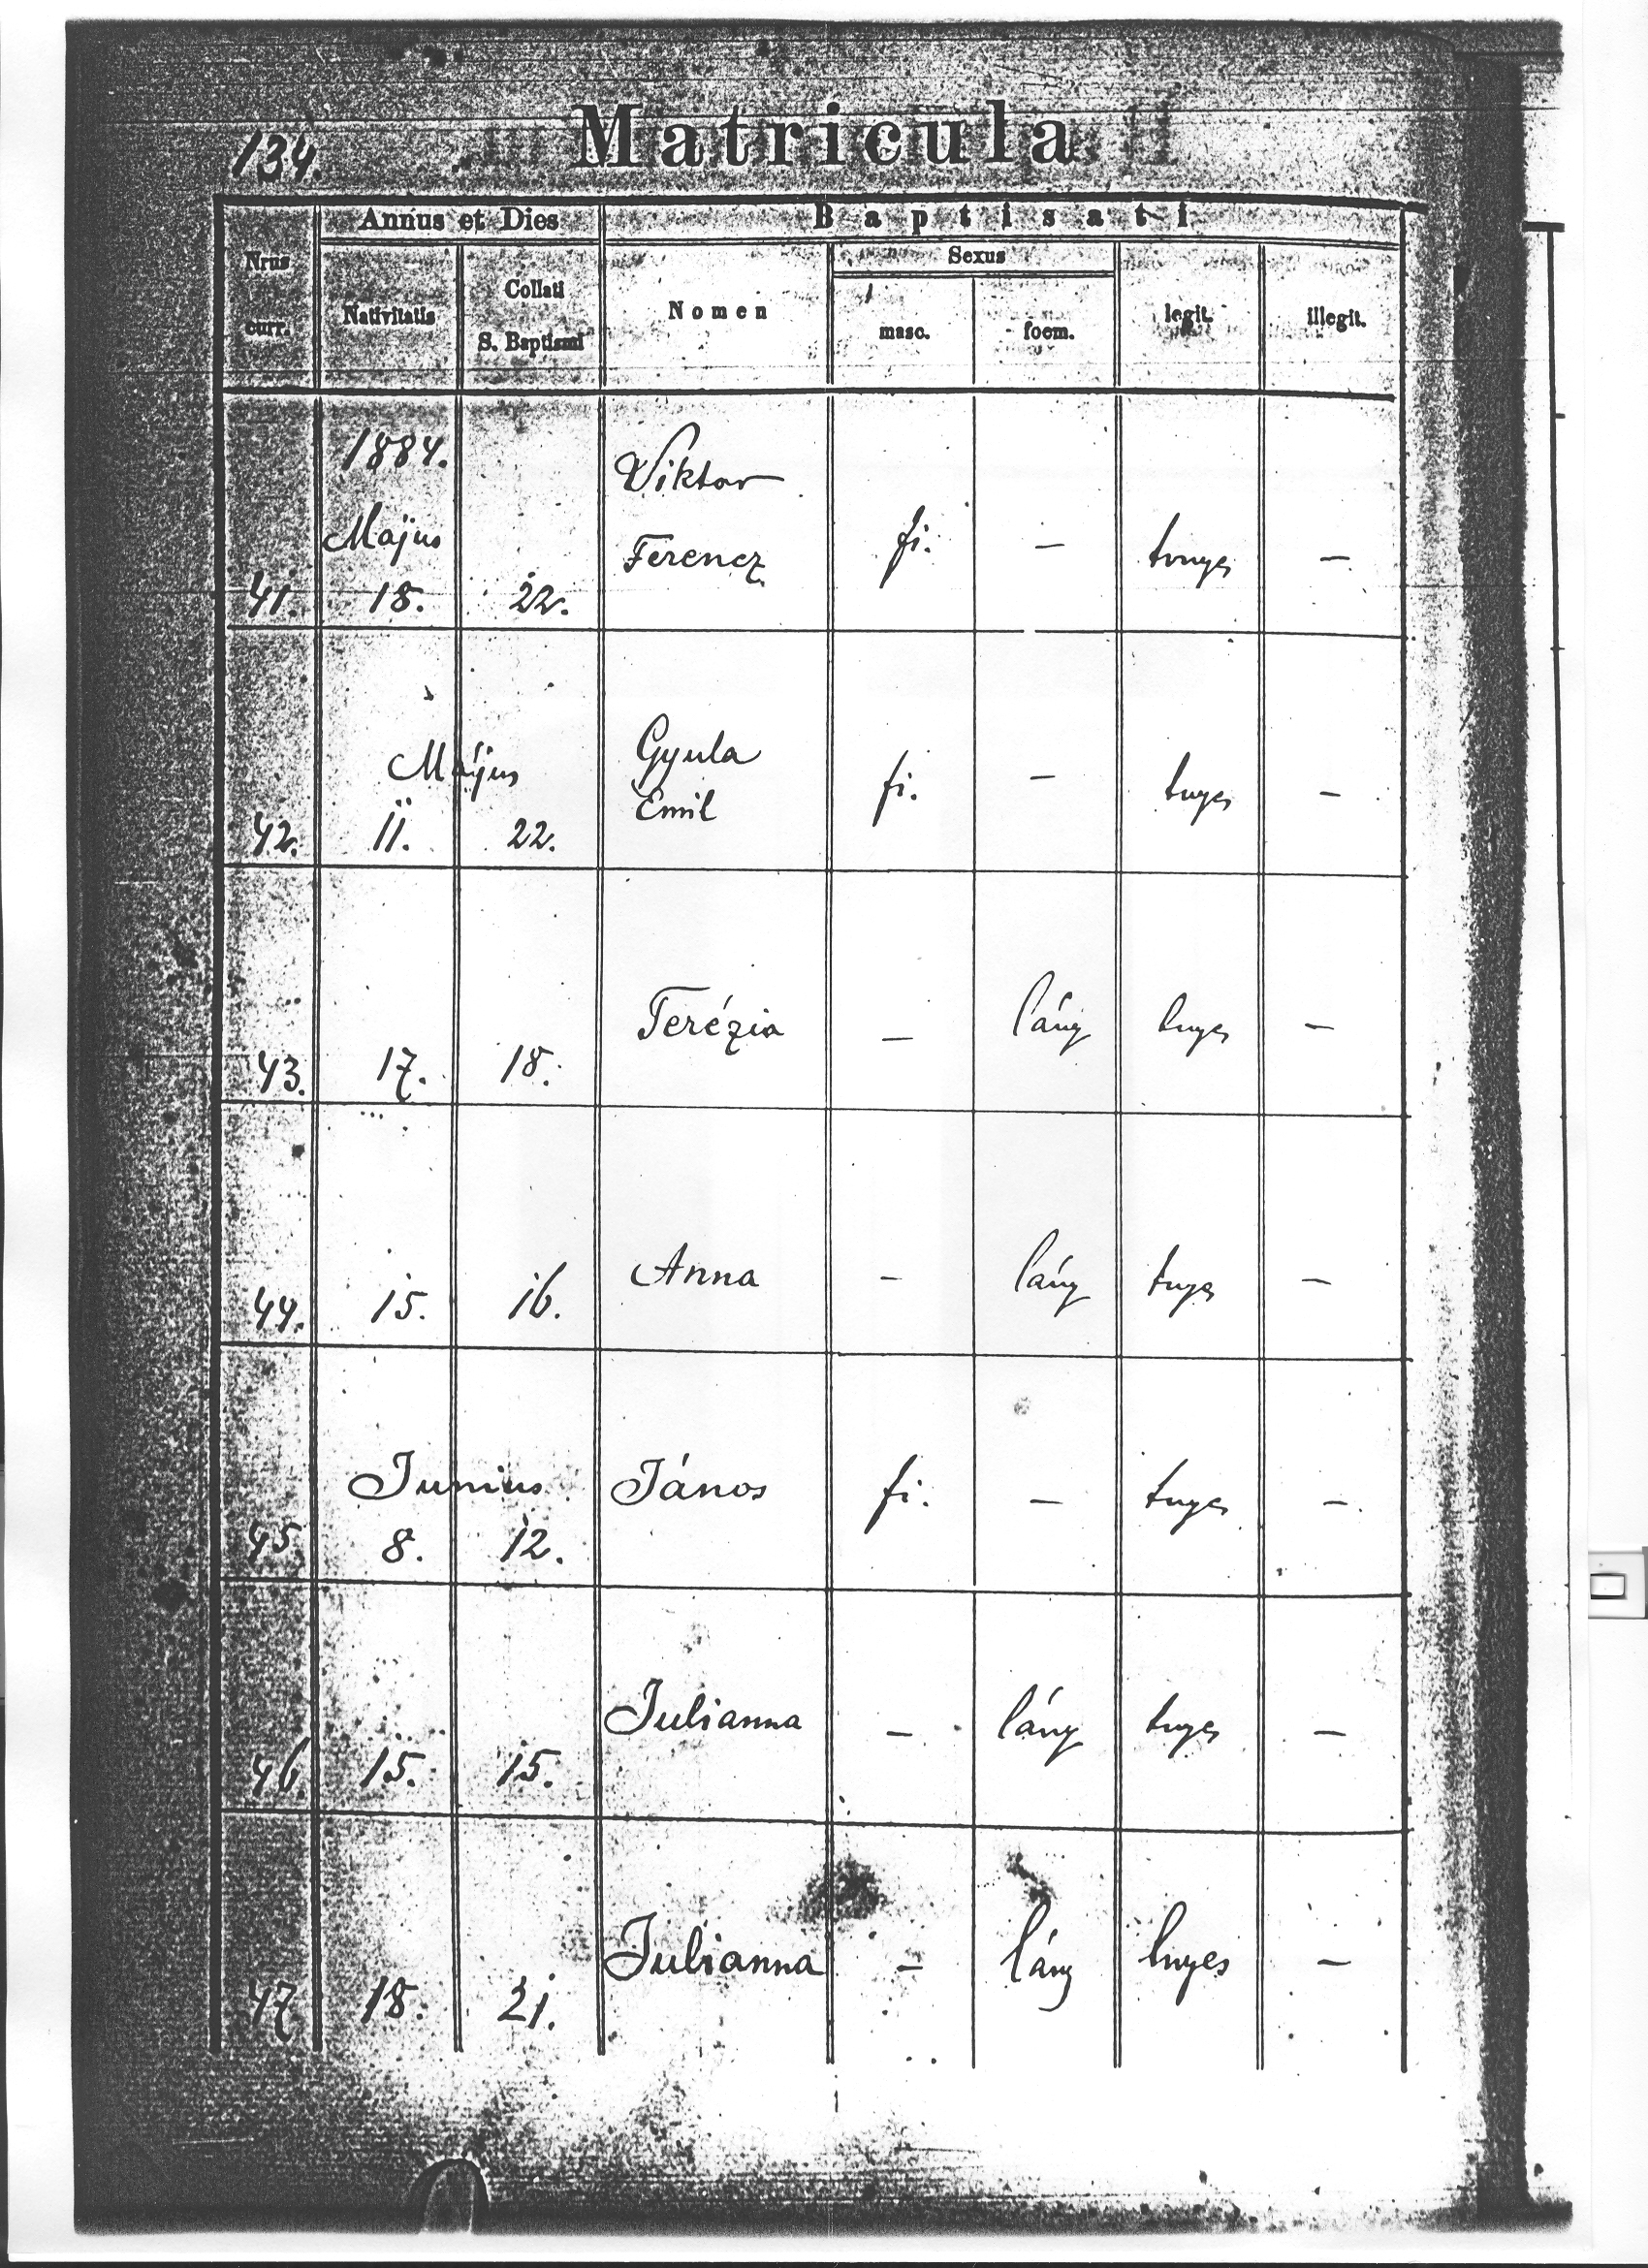 134.
Matricula
Nrus curr.
Annus et Dies
Baptisati
Nativitatis
Collati S. Baptismi
Nomen
Sexus
masc.
foem.
legit.
illegit.
1884.
Május
41. 18. 22. Viktor Ferencz fi. — tvnyes —
Május
42. 11. 22. Gyula Emil fi. — tnyes —
43. 17. 18. Terézia — lány tnyes —
44. 15. 16. Anna — lány tnyes —
Junius
45 8. 12. János fi. — tnyes —
46 15. 15. Julianna — lány tnyes —
47 18. 21. Julianna — lány tnyes —